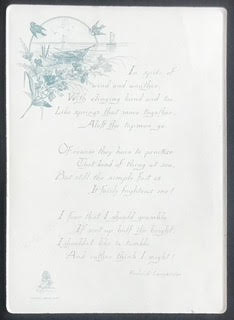 In spite of
wind and weather,
With clinging hand and toe,
Like springs that move together,
Aloft the topmen go.
Of course they have to practise
That kind of thing at sea,
But still the simple fact is
It fairly frightens me!
I fear that I should grumble
If sent up half the height,
I shouldn't like to tumble
And rather think I might!
Frederick Langbridge